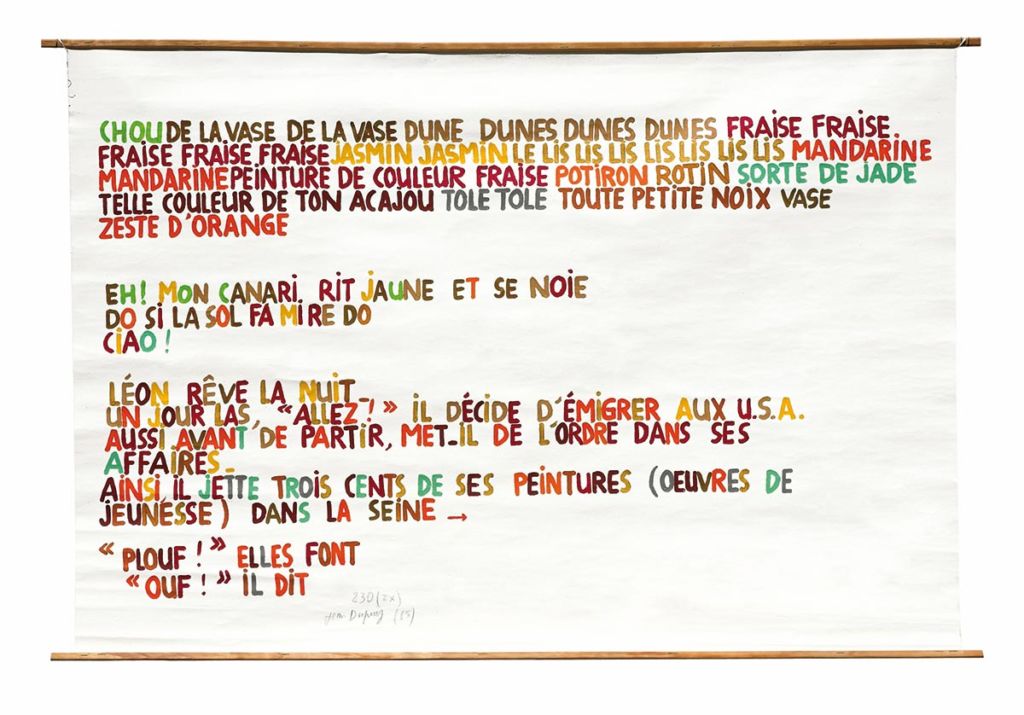 CHOU DE LA VASE DE LA VASE DUNE DUNES DUNES DUNES FRAISE FRAISE.
FRAISE FRAISE FRAISE JASMIN JASMIN LE LIS LIS LIS LIS LIS LIS LIS MANDARINE
MANDARINE PEINTURE DE COULEUR FRAISE POTIRON ROTIN SORTE DE JADE
TELLE COULEUR DE TON ACAJOU TOLE TOLE TOUTE PETITE NOIX VASE
ZESTE D'ORANGE
EH! MON CANARI RIT JAUNE ET SE NOIE
DO SI LA SOL FA MI RE DO
CIAO !
LÉON RÊVE LA NUIT_
UN JOUR LAS, "ALLEZ!" IL DÉCIDE D'ÉMIGRER AUX U.S.A.
AUSSI AVANT DE PARTIR, MET-IL DE L'ORDRE DANS SES
AFFAIRES_
AINSI, IL JETTE TROIS CENTS DE SES PEINTURES (OEUVRES DE
JEUNESSE) DANS LA SEINE →
"PLOUF !" ELLES FONT
"OUF !" IL DIT
230 (IX)
Jean Dupuy (85)